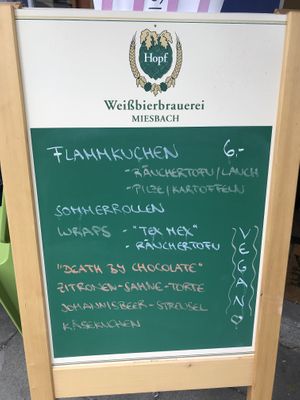 Hopf
Weißbierbrauerei
MIESBACH
FLAMMKUCHEN 6,-
- RÄUCHERTOFU/LAUCH
- PILZE/KARTOFFELN
SOMMERROLLEN
WRAPS - "TEX MEX"
- RÄUCHERTOFU
"DEATH BY CHOCOLATE"
ZITRONEN-SAHNE-TORTE
JOHANNISBEER-STREUSEL
KÄSEKUCHEN
VEGAN!